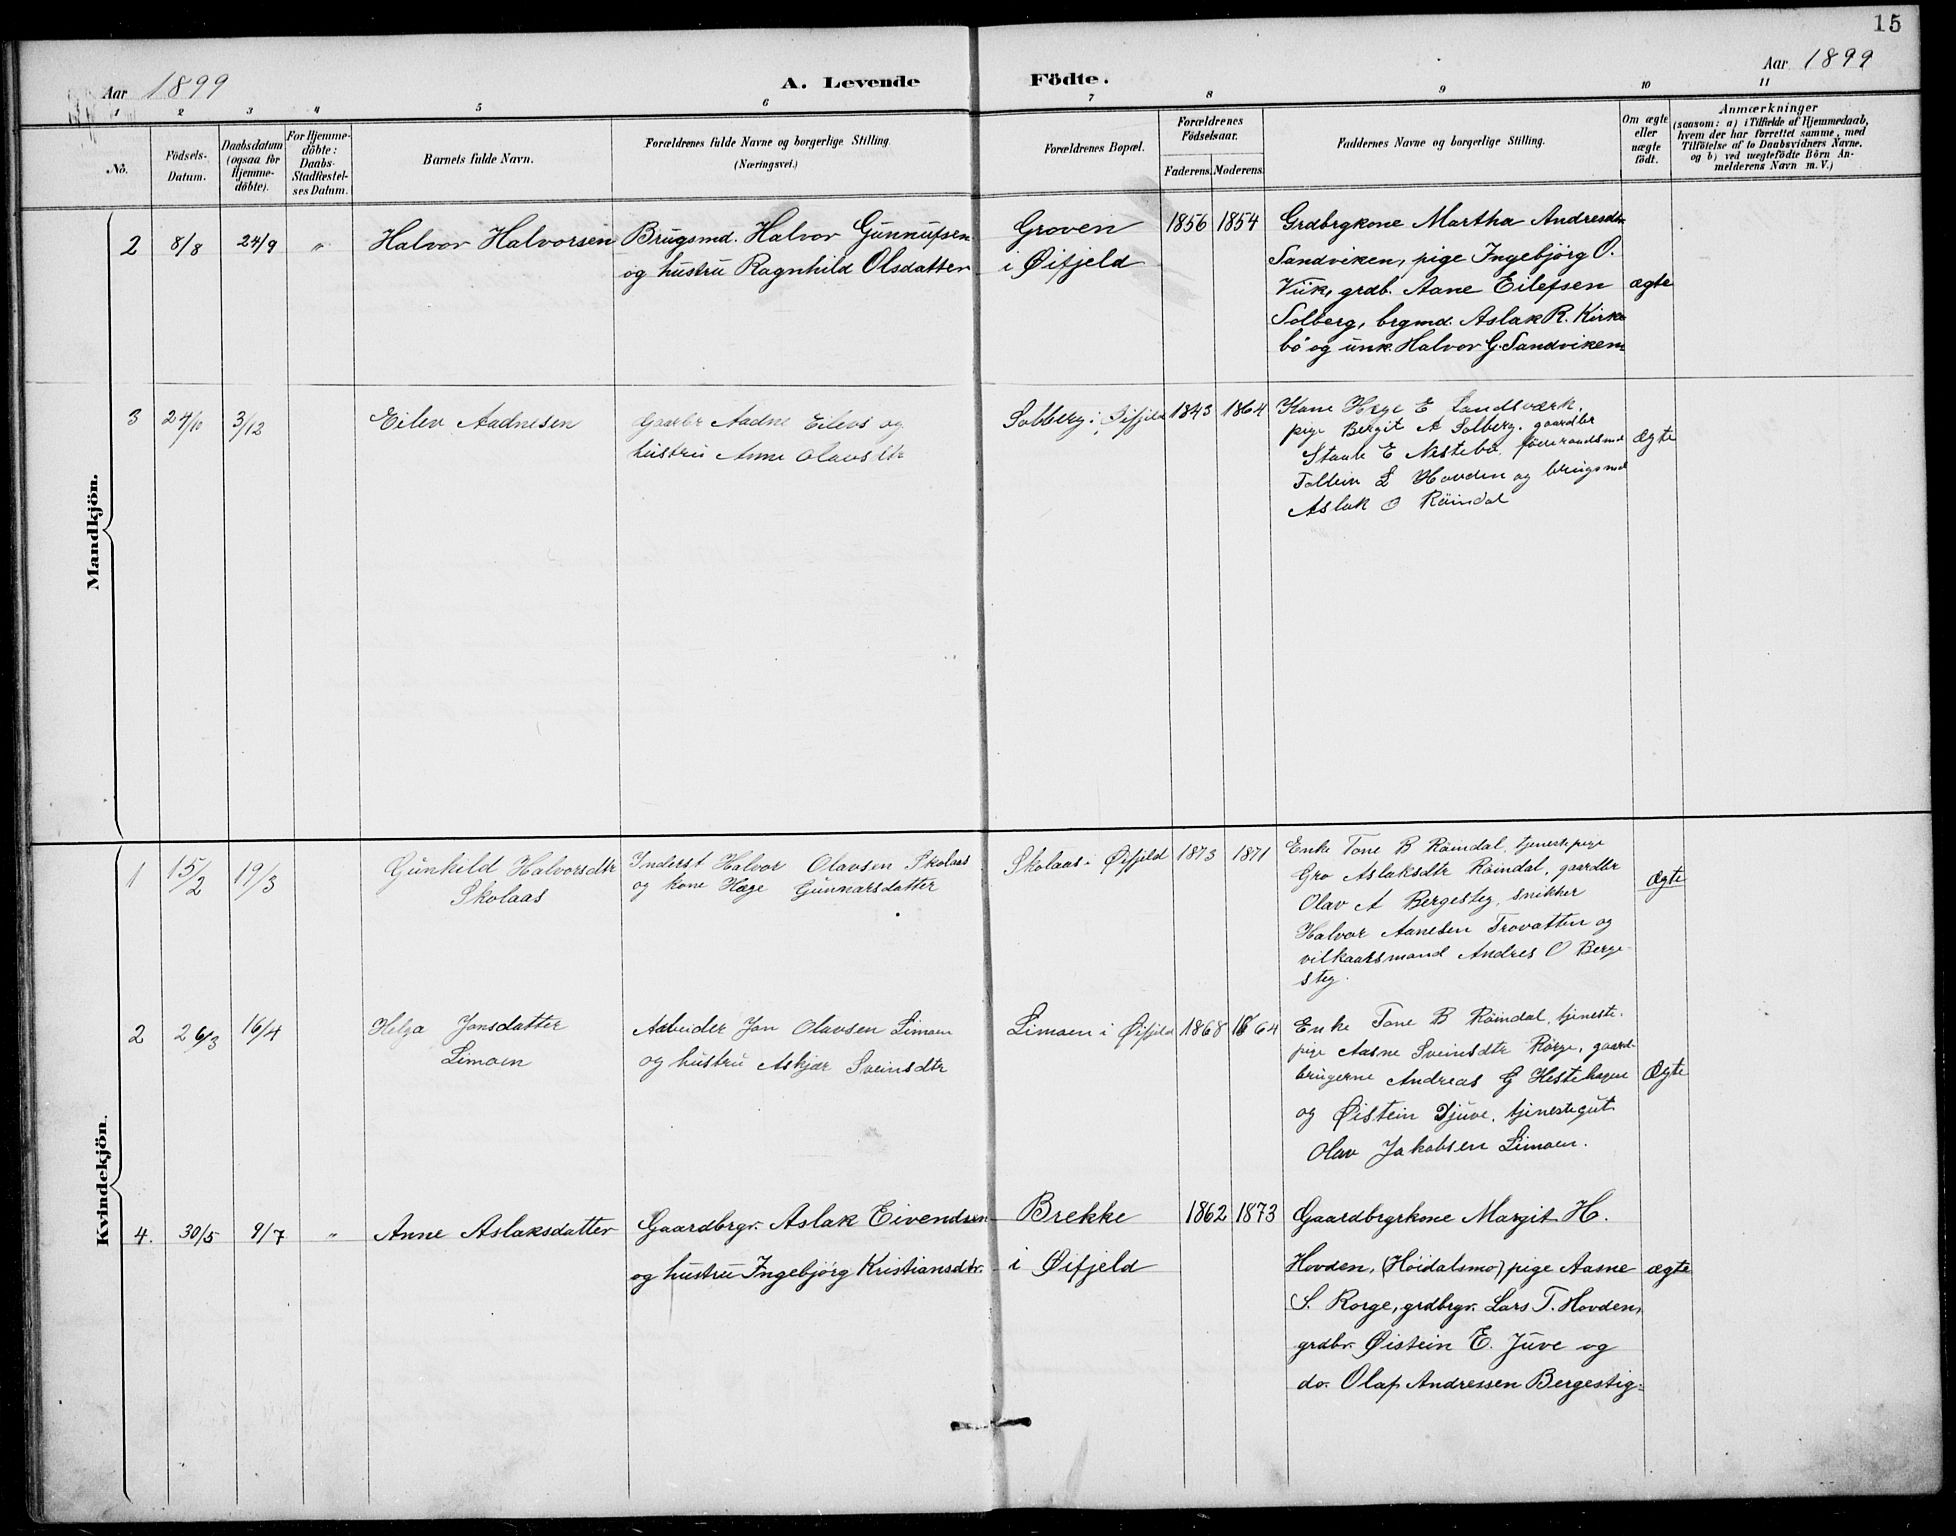 15
Aar 1899 A. Levende Födte. Aar 1899
1 2 3 4 5 6 7 8 9 10 11
No.
Födsels-
Datum.
Daabsdatum
(ogsaa for
Hjemme-
döbte).
For Hjemme-
döbte:
Daabs-
Stadfæstel-
ses Datum.
Barnets fulde Navn.
Forældrenes fulde Navne og borgerlige Stilling
(Næringsvei.)
Forældrenes Bopæl.
Forældrenes
Födselsaar.
Faderens. Moderens.
Faddernes Navne og borgerlige Stilling.
Om ægte
eller
uægte
födt.
Anmærkninger
(saasom: a) i Tilfælde af Hjemmedaab,
hvem der har forrettet samme, med
Tilföielse af to Daabsvidners Navne.
og b) ved uegtefödte Börn An-
melderens Navn m. V.)
Mandkjön.
2 8/8 24/9 "
Halvor Halvorsen
Brugsmd. Halvor Gunnufsen
og hustru Ragnhild Olsdatter
Groven
i Øifjeld
1856 1854
Grdbrgkone Martha Andresdtr
Sandviken, pige Ingebjörg O.
Viik, grdb. Aane Eilefsen
Solberg, brgmd. Aslak R. Kirke
bö og unk. Halvor G. Sandviken
ægte
3 24/10 3/12
Eilev Aadnesen
Gaardbr Aadne Eilevs og
hustru Anne Olavsdtr
Solberg i Øifjeld
1843 1864
Kone Hæge E Landsværk,
pige Bergit A Solberg, gaardbr
E Nestebø, föderaadsmd
Tallein L Hovden og brugsmd
Aslak O Röindal
Ægte
Kvindekjön.
1 15/2 19/3
Gunhild Halvorsdtr
Skolaas
Inderst Halvor Olavsen Skolaas
og kone Hæge Gunnarsdatter
Skolaas i Øifjeld
1873 1871
Enke Tone B Röindal, tjenestepige
Gro Aslaksdtr Röindal, gaardbr
Olav A Bergesteg, snikker
Halvor Aanesen Trovatten og
vilkaarsmand Andres O Berge-
steg.
Ægte
2 26/3 16/4
Helga Jonsdatter
Limoen
Arbeider Jon Olavsen Limoen
og hustru Askjær Sveinsdtr
Limoen i Øifjeld
1868 1864
Enke Tone B Röindal, tjeneste-
pige Aasne Sveinsdtr Rorge, gaard-
brugerne Andreas G Hestehagen
og Øistein Djuve, tjenestegut
Olav Jakobsen Limoen.
Ægte
4. 30/5 9/7 "
Anne Aslaksdatter
Gaardbrgr. Aslak Eivendsen
og hustru Ingebjörg Kristiansdtr.
Brekke
i Øifjeld
1862 1873
Gaardbrgrkone Margit H.
Hovden, (Höidalsmo) pige Aasne
S. Rorge, grdbrgr. Lars T. Hovden,
grdbr. Øistein E. Juve og
do. Olaf Andressen Bergestig.
ægte